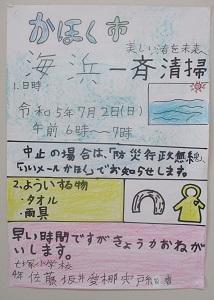 かほく市
美しい渚を未来へ
海浜一斉清掃
1.日時
令和5年7月2日(日)
午前6時〜7時
中止の場合は、「防災行政無線」
「いいメールかほく」でお知らせします。
2.よういする物
・タオル
・雨具
早い時間ですがきょう力おねが
いします。
七塚小学校
4年 佐藤 坂井